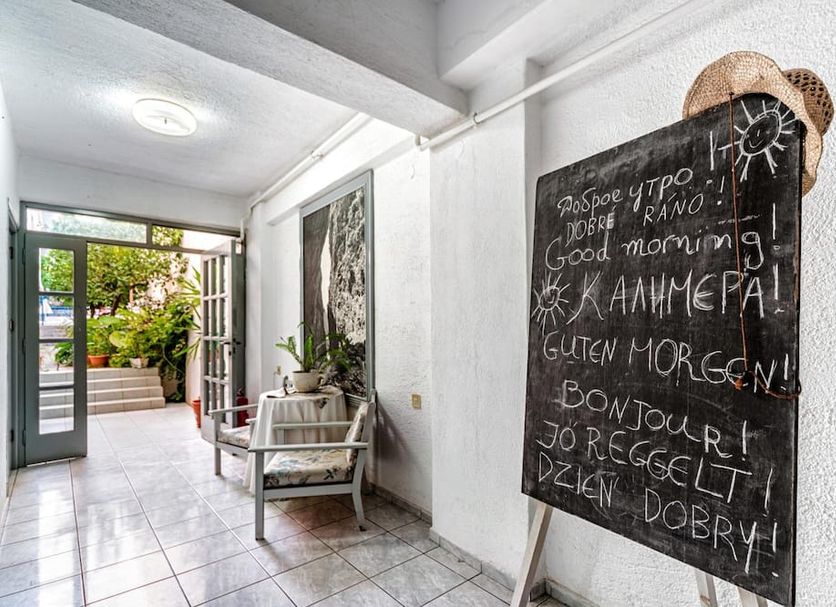 Доброе утро!
DOBRE RÁNO!
Good morning!
ΚΑΛΗΜΕΡΑ!
GUTEN MORGEN!
BONJOUR!
JÓ REGGELT!
DZIEŃ DOBRY!